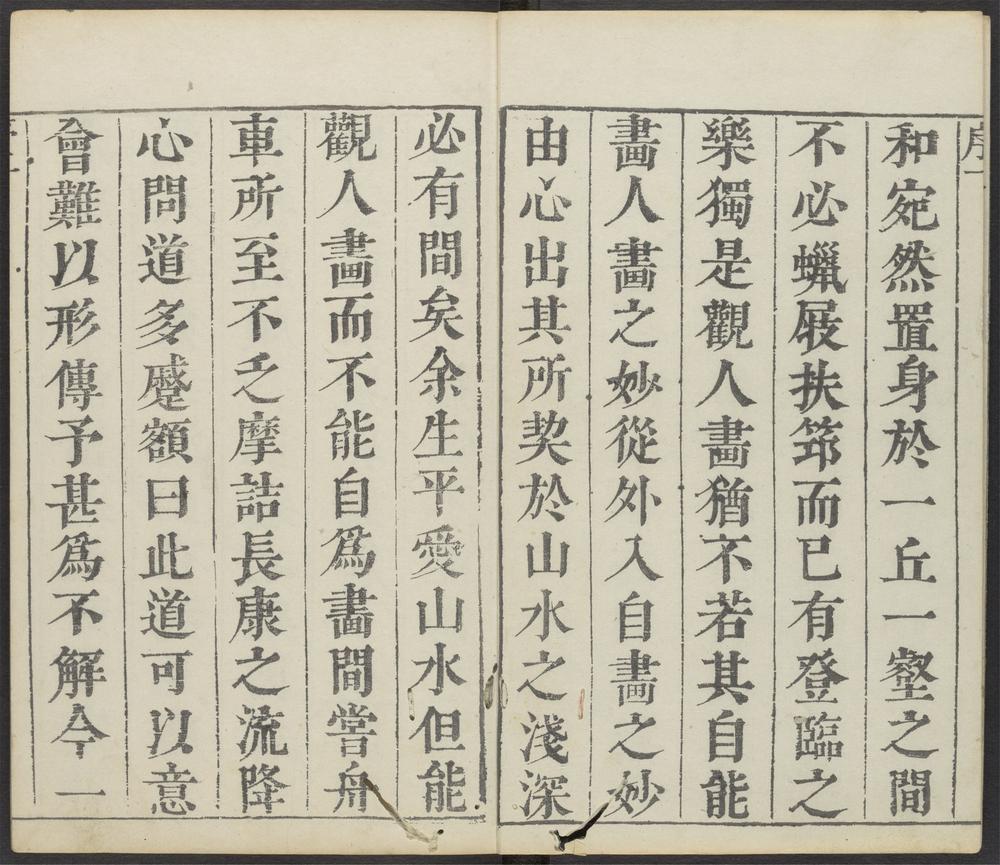 序
和宛然置身於一丘一壑之間
不必蠟屐扶筇而已有登臨之
樂獨是觀人畫猶不若其自能
畫人畫之妙從外入自畫之妙
由心出其所契於山水之淺深
必有間矣余生平愛山水但能
觀人畫而不能自爲畫間嘗舟
車所至不乏摩詰長康之流降
心問道多蹙額曰此道可以意
會難以形傳予甚爲不解今一